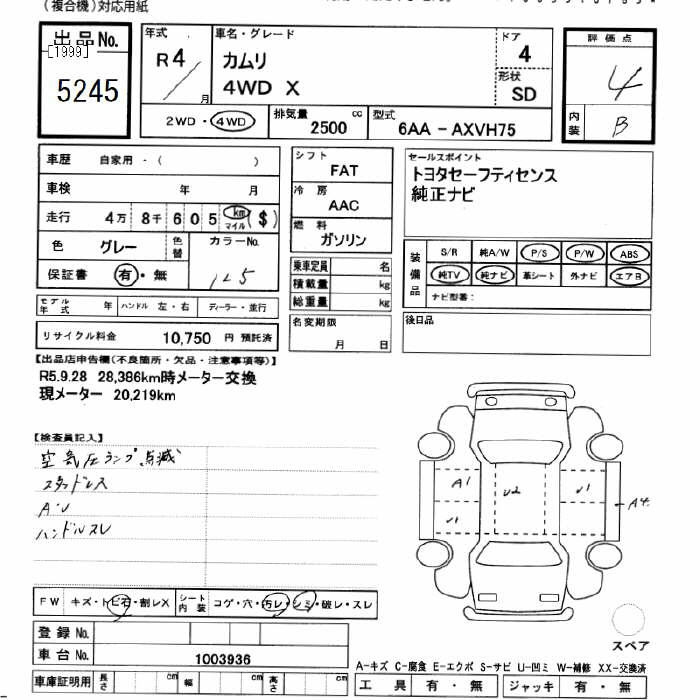 (複合機)対応用紙
出品No.
[1999]
5245
年式
R4/
月
車名・グレード
カムリ
4WD X
ドア
4
形状
SD
2WD・4WD
排気量
2500
cc
型式
6AA - AXVH75
評価点
4
内装
B
車歴 自家用 - ( )
車検 年 月
走行 4万 8千 6 0 5 km マイル ($)
色 グレー
色替
カラーNo.
1L5
保証書 有・無
モデル年式 年 ハンドル 左・右 ディーラー・並行
リサイクル料金 10,750 円 預託済
シフト
FAT
冷房
AAC
燃料
ガソリン
乗車定員 名
積載量 kg
総重量 kg
名変期限
月 日
セールスポイント
トヨタセーフティセンス
純正ナビ
装備品
S/R 純A/W P/S P/W ABS
純TV 純ナビ 革シート 外ナビ エアB
ナビ型番:
後日品
【出品店申告欄(不良箇所・欠品・注意事項等)】
R5.9.28 28,386km時メーター交換
現メーター 20,219km
【検査員記入】
空気圧ランプ点滅
スタッドレス
ハンドルスレ
A1
U2
A4
FW キズ・トビ石・割レX
シート内装 コゲ・穴・汚レ・シミ・破レ・スレ
登録No.
車台No. 1003936
車庫証明用 長さ cm 幅 cm 高さ cm
スペア
A-キズ C-腐食 E-エクボ S-サビ U-凹ミ W-補修 XX-交換済
工具 有・無 ジャッキ 有・無